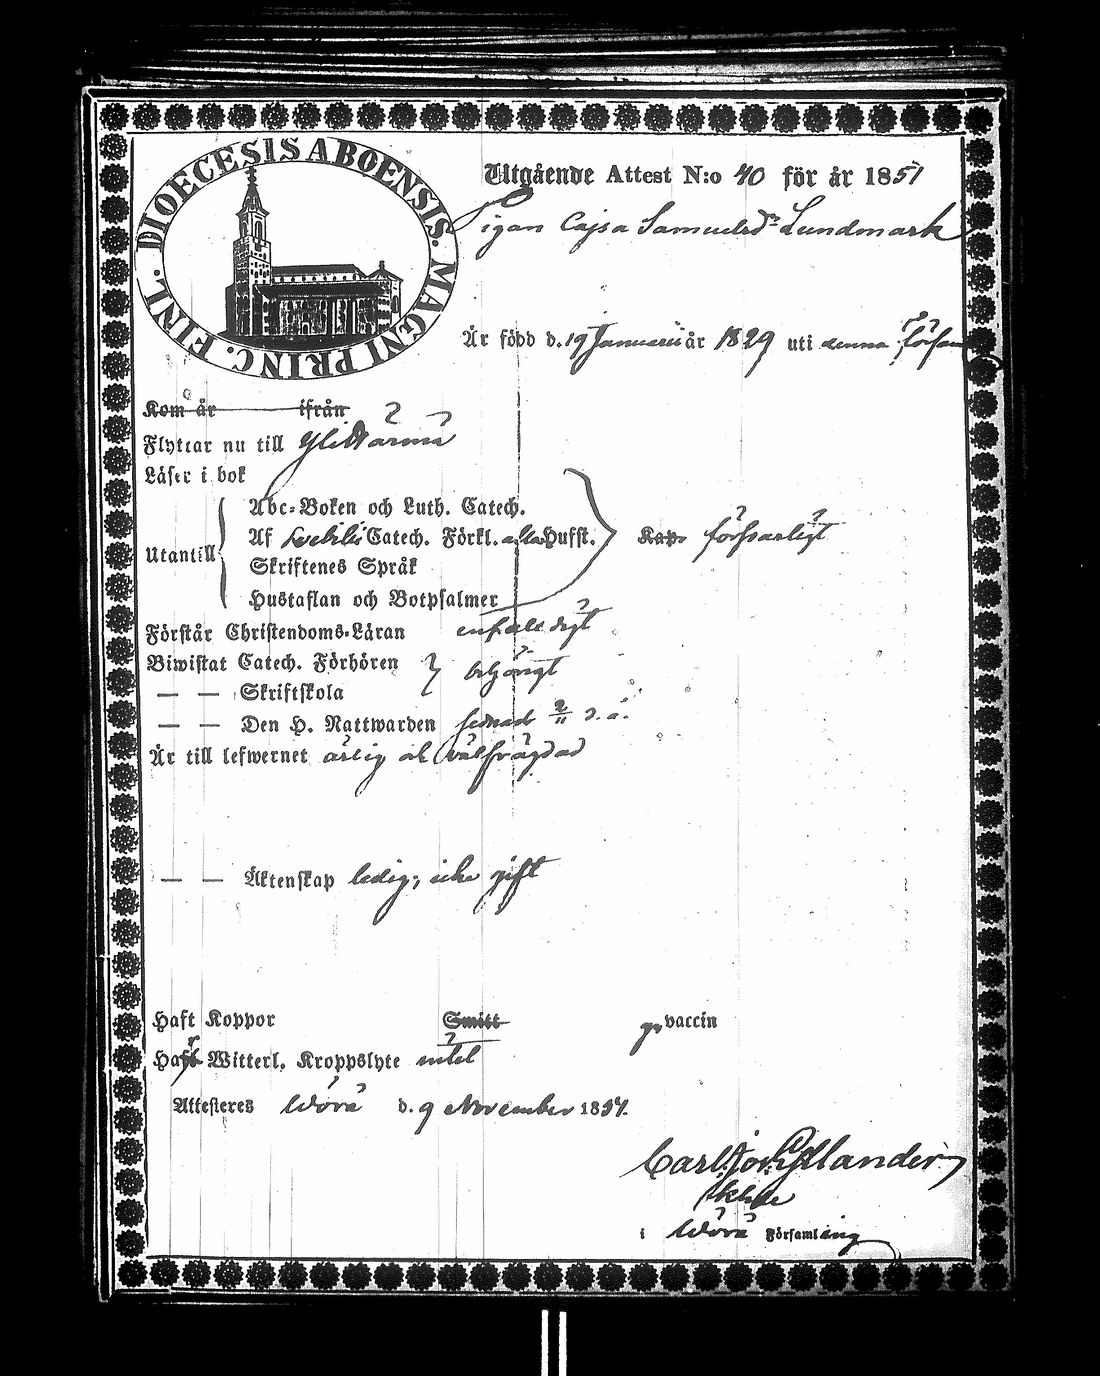 DIOECESIS ABOENSIS. MAGNI PRINC. FINL.
Utgående Attest N:o 40 för år 1851
Pigan Cajsa Samuelsdr Lundmark
Är född d. 19 Januarii år 1829 uti denna förs
Kom år ifrån
Flyttar nu till Ylihärmä
Läser i bok
Utantill
Abc-Boken och Luth. Catech.
Af Svebilii Catech. Förkl. alla Hufst.
Skriftenes Språk
Hustaflan och Botpsalmer
Kap. försvarligt
Förstår Christendoms-Läran enfaldigt
Biwistat Catech. Förhören
— — Skriftskola
behörigt
— — Den H. Nattwarden sednast 2/11 d.å.
Är till lefwernet ärlig och välfrägdad
— — Äktenskap ledig, icke gift
Haft Koppor Smitt gn vaccin
Haft Witterl. Kroppslyte intet
Attesteres Wörå d. 9 November 1851.
Carl Gyllander
i Wörå Församling